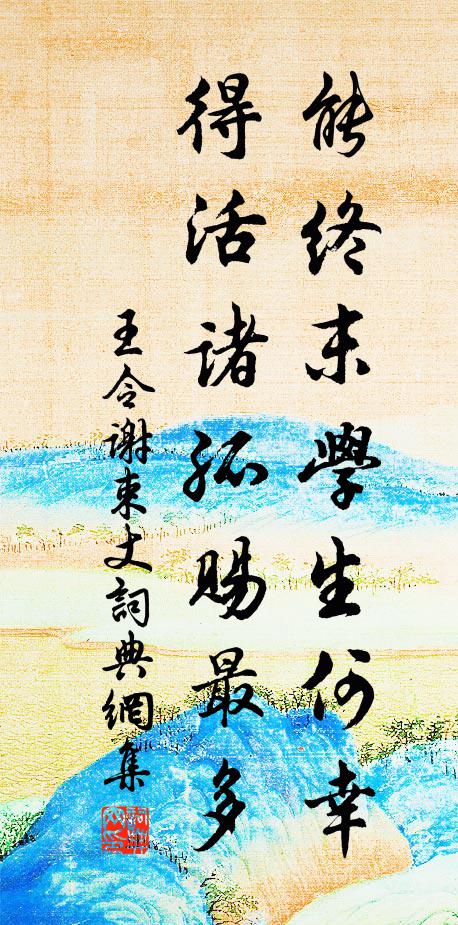 能終末學生何幸
得活諸孤賜最多
王令謝束丈詞典網集